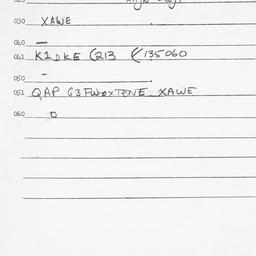 030 XAWE
060 —
061 K1DKE (213 (135060
050 –
051 QAP G3FWOXTPNE XAWE
060 D